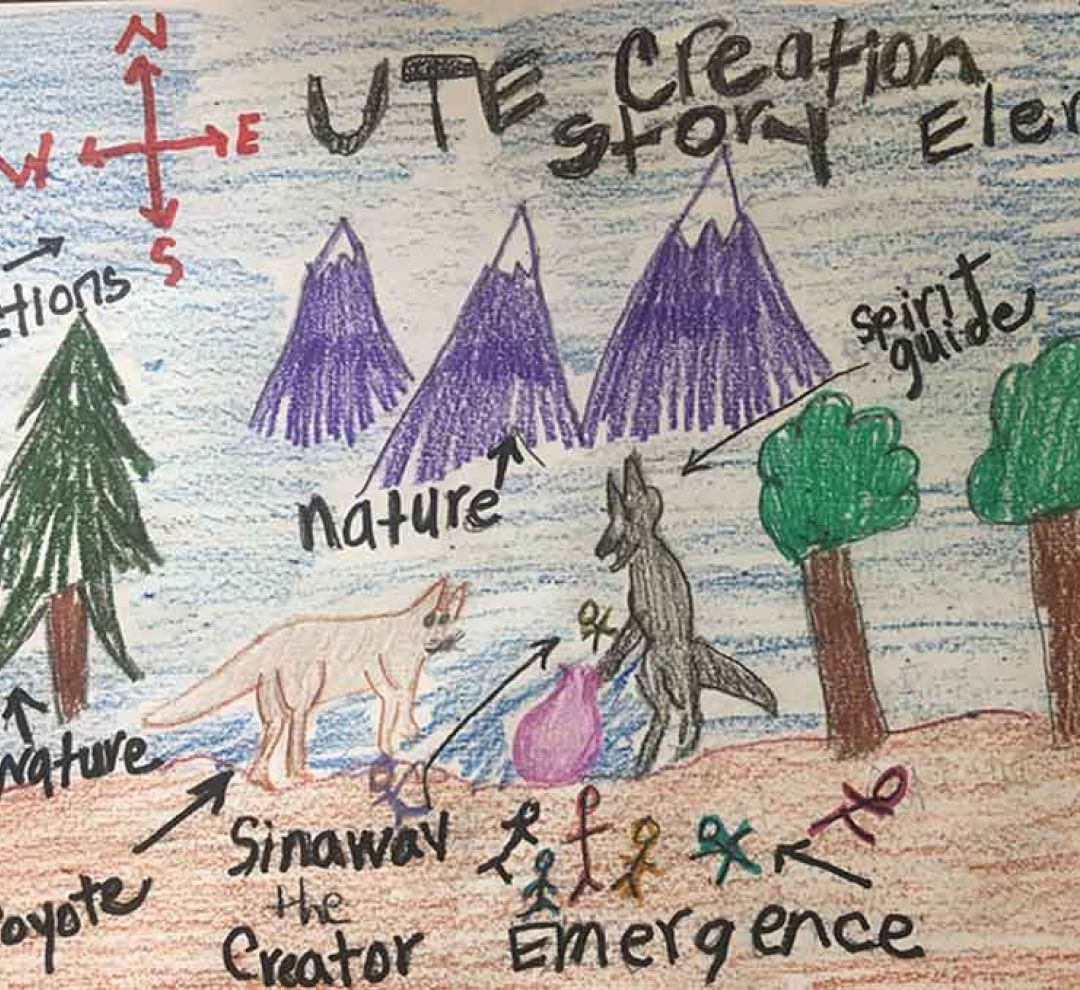 N
W E
S
UTE Creation
Story Elem
ctions
spirit
guide
nature
Nature
Coyote
Sinawav
the
Creator
Emergence